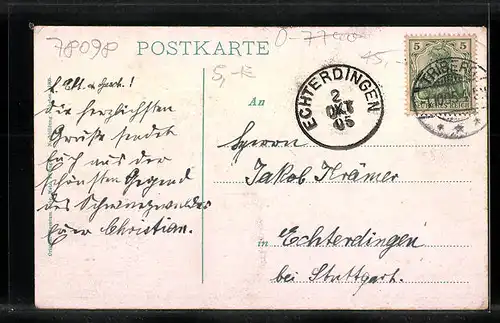 78098
POSTKARTE
5,-
5 5
TRIBERG
DEUTSCHES REICH
ECHTERDINGEN
2
OKT
05
L. Elt. u. Gesch.!
Die herzlichsten
Grüße sendet
Euch aus der
schönsten Gegend
des Schwarzwaldes
Euer Christian.
An
Herrn
Jakob Krämer
in Echterdingen
bei Stuttgart.